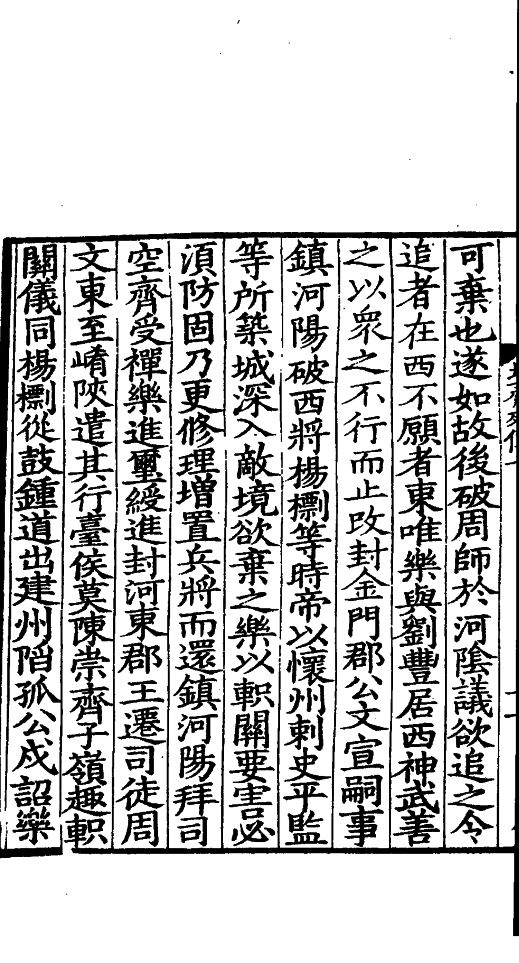 可棄也遂如故後破周師於河陰議欲追之令
追者在西不願者東唯樂與劉豐居西神武善
之以衆之不行而止改封金門郡公文宣嗣事
鎮河陽破西將楊檦等時帝以懷州刺史平監
等所築城深入敵境欲棄之樂以軹關要害必
湏防固乃更修理增置兵將而還鎮河陽拜司
空齊受禪樂進璽綬進封河東郡王遷司徒周
文東至崤陜遣其行臺侯莫陳崇齊子嶺趣軹
關儀同楊檦從鼓鍾道出建州陷孤公戍詔樂